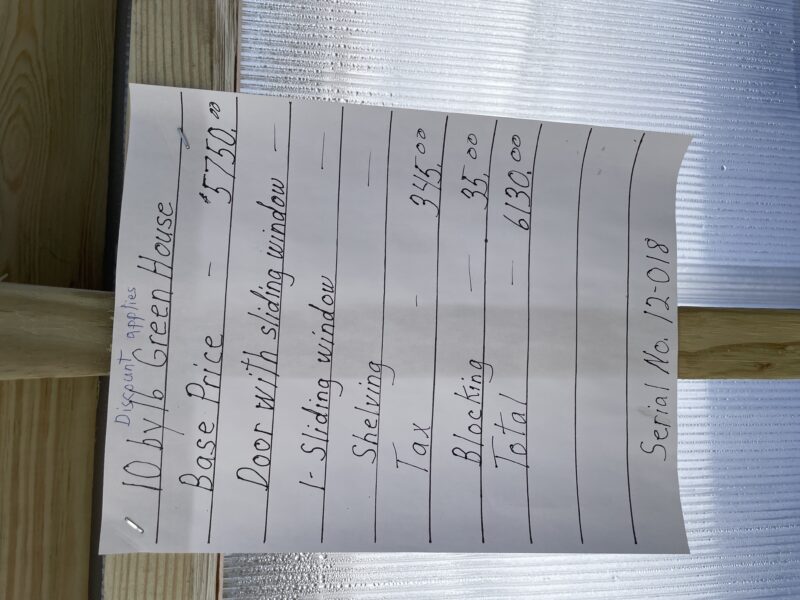 Discount applies
10 by 16 Green House
Base Price - $5750.00
Door with sliding window -
1- Sliding window -
Shelving -
Tax - 345.00
Blocking - 35.00
Total - 6130.00
Serial No. 12-018